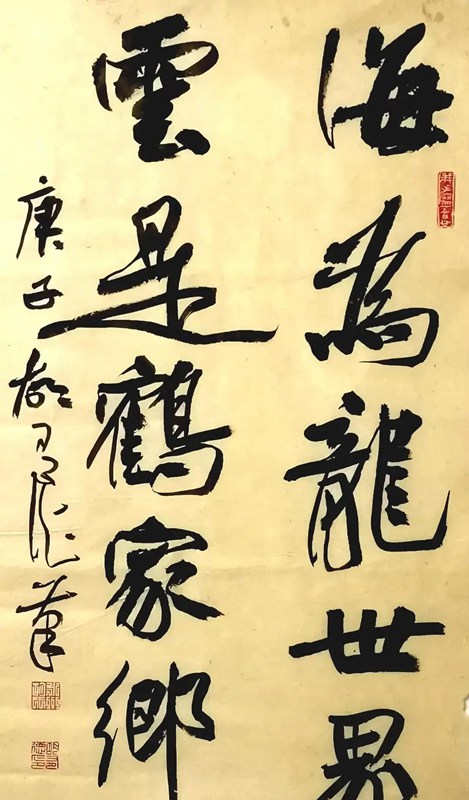 海為龍世界
雲是鶴家鄉
庚子